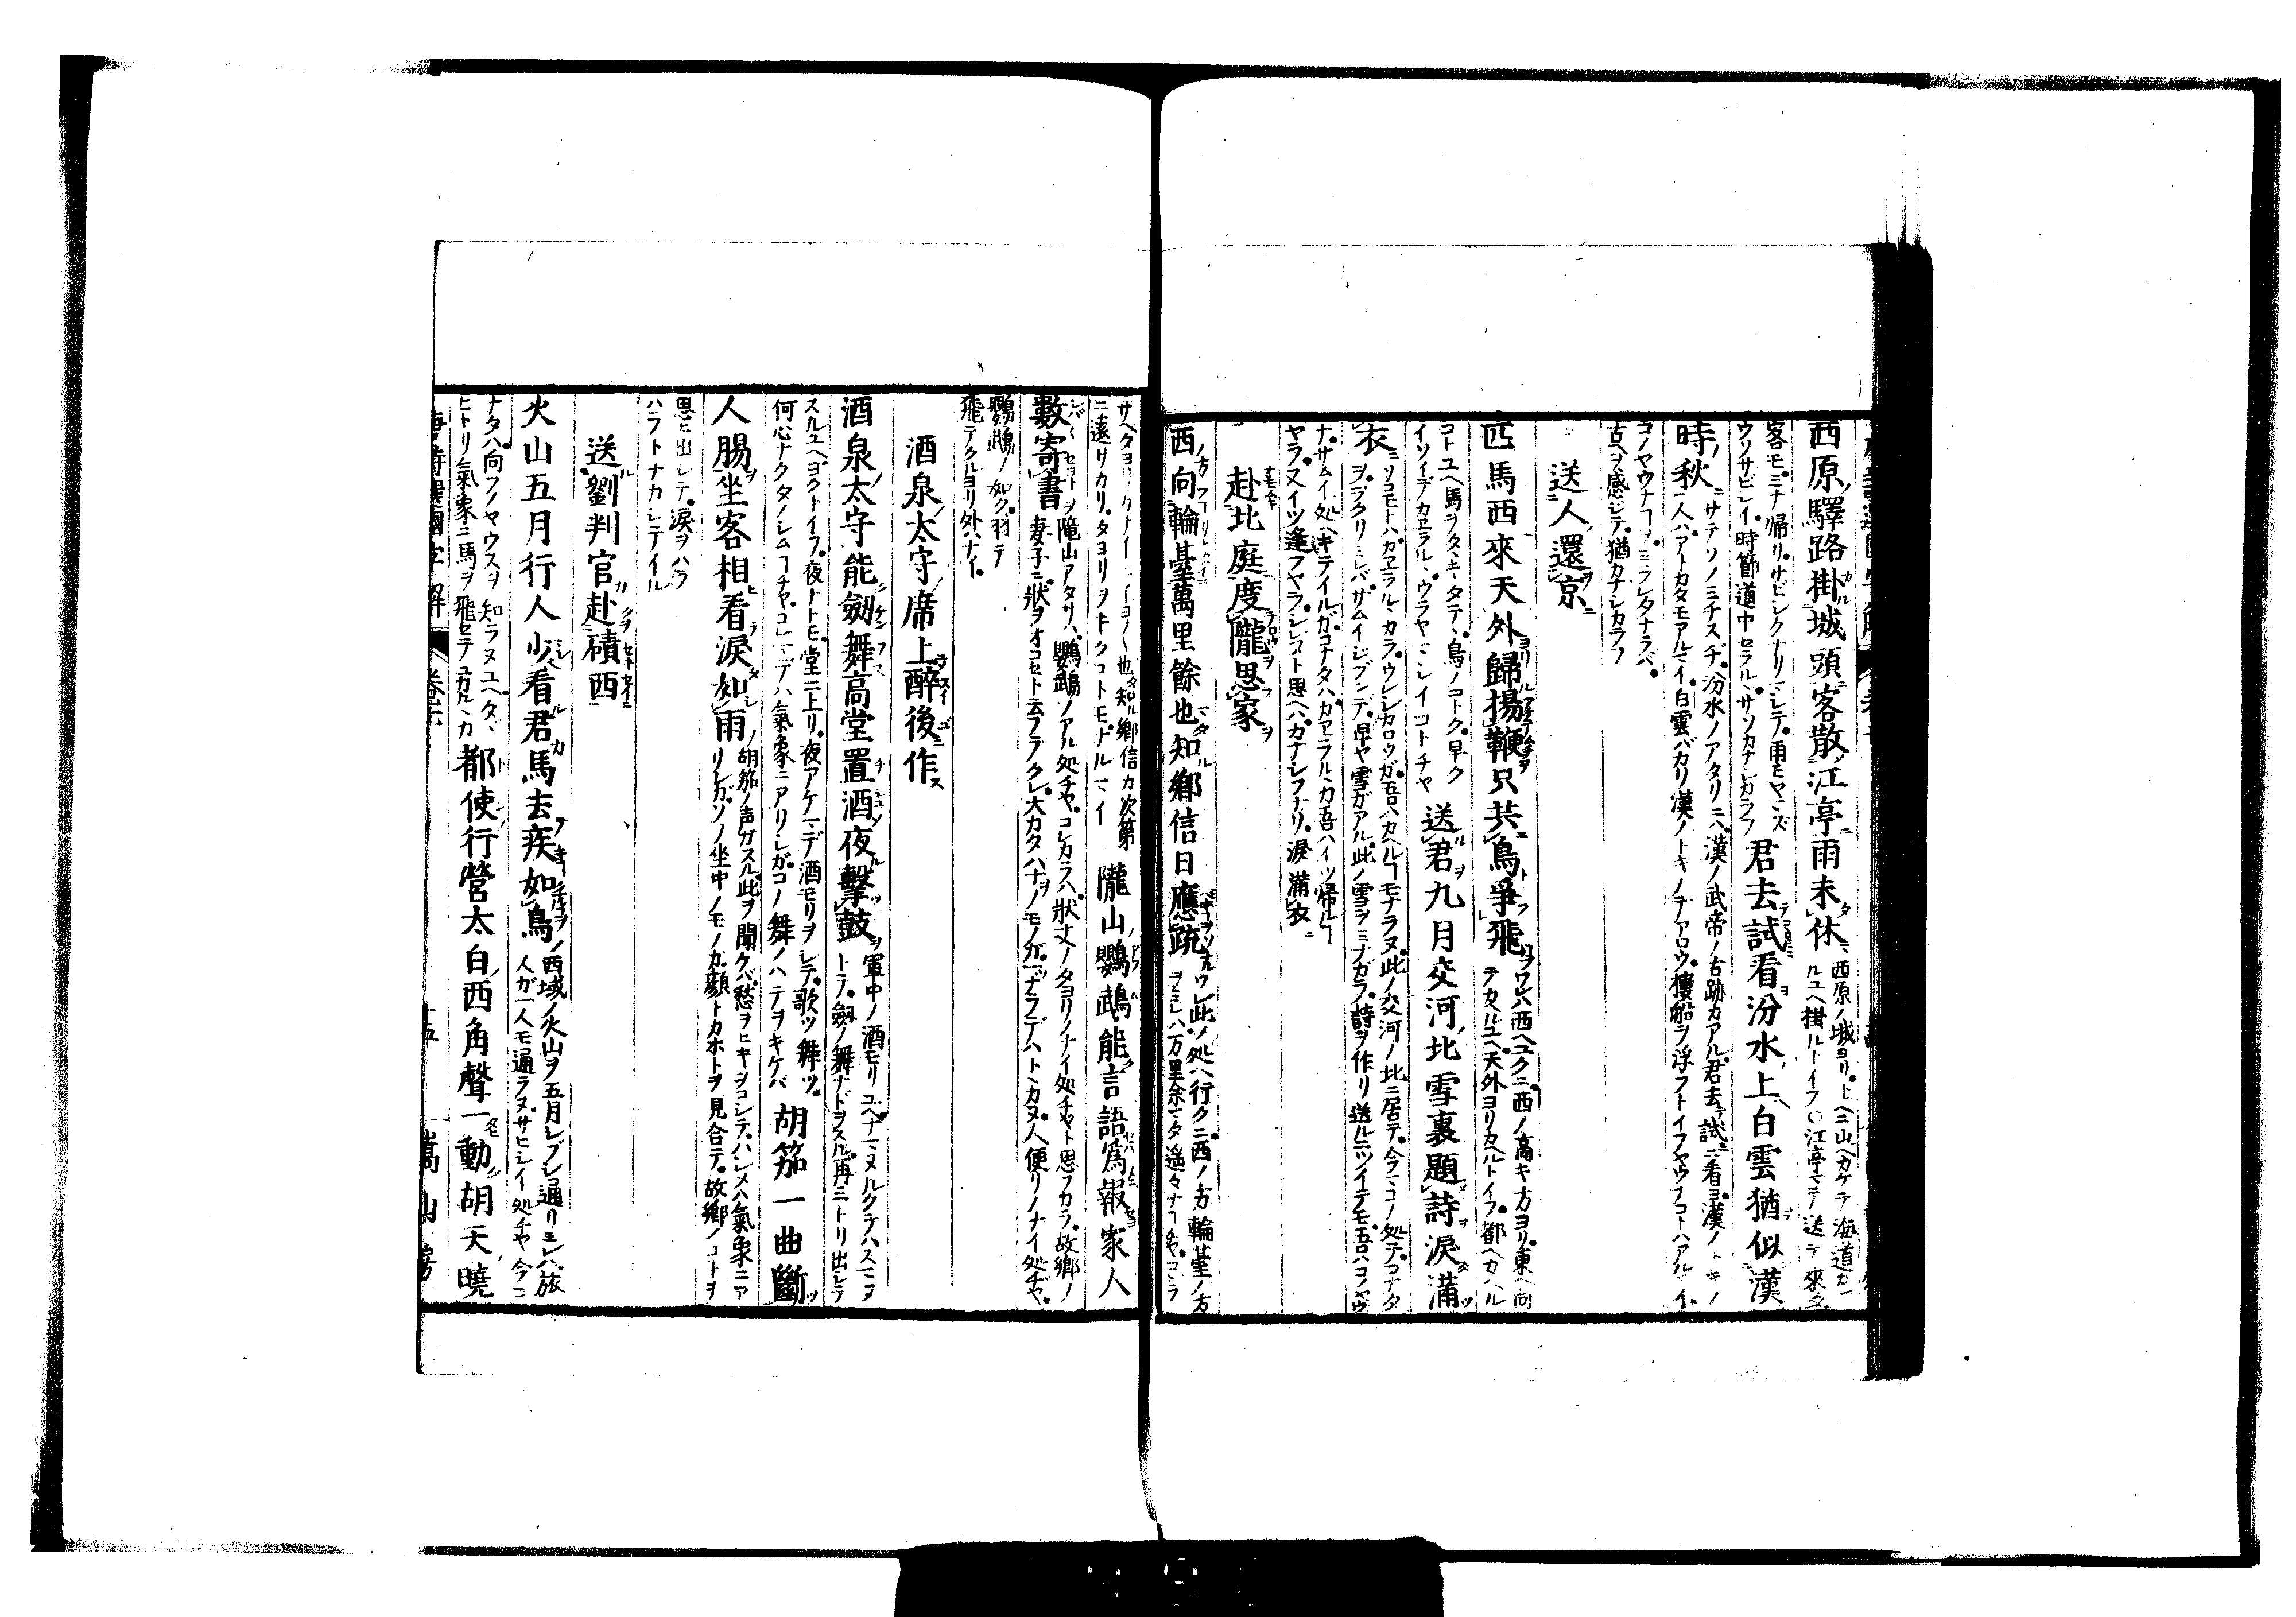 西原驛路掛城頭客散江亭雨未休
西原ノ城ヨリ上ヘ三山ヘカケテ海道カ
ルユヘ掛ルトイフ〇江亭マデ送テ來タ
客モミナ帰リサビシクナリマシテ雨モヤマズ
ウソサビシイ時節道中セラルヽサソカナシカラフ
君去試看汾水上白雲猶似漢
時秋
サテソノミチスヂ汾水ノアタリニハ漢ノ武帝ノ古跡カアル君去試ニ看ヨ漢ノトキノ
人ハアトカタモアルマイ白雲バカリ漢ノトキノデアロウ樓船ヲ浮フトイフヤウナコトハアルマイ
コノヤウナコヲミラレタナラバ
古ヘヲ感ジテ猶カナシカラフ
送人還京
匹馬西來天外歸揚鞭只共鳥爭飛
ワレハ西ヘユクニ西ノ高キ方ヨリ東ヘ向
テカヘルユヘ天外ヨリカヘルトイフ都ヘカヘル
コトユヘ馬ヲタヽキタテヽ鳥ノコトク早ク
イソイデカヱラルヽウラヤマシイコトチヤ
送君九月交河北雪裏題詩淚滿
衣
ソコモトハカヱラルヽカラウレシカロウガ吾ハカヘルコモナラヌ此ノ交河ノ北ニ居テ今マコノ処テコナタ
ヲヲクリミレバサムイジブンデ早ヤ雪ガアル此ノ雪ヲミナガラ詩ヲ作リ送ルニツイテモ吾ハコノヤウ
ナサムイ処ヘキテイルガコナタハカヱラルヽカ吾ハイツ帰ルコ
ヤラヌイツ逢フヤラシレヌト思ヘバカナシフナリ淚滿衣
赴北庭度隴思家
西向輪臺萬里餘也知鄉信日應疏
此ノ処ヘ行クニ西ノ方輪臺ノ方
ヲミレハ万里余マタ遙々ナコチヤコヽラ
サヘタヨリスクナイニイヨ〱也タ知ル鄉信カ次第
ニ遠サカリタヨリヲキクコトモナルマイ
隴山鸚鵡能言語爲報家人
數寄書
隴山アタリハ鸚鵡ノアル処チヤコレカラハ狀文ノタヨリノナイ処チヤト思フカラ故鄉ノ
妻子ニ狀ヲオコセト云フテクレ大カタハナノモノガナラデハトヽカヌ人便リノナイ処ヂヤ
鸚鵡ノ如ク羽テ
飛テクルヨリ外ハナイ
酒泉太守席上醉後作
酒泉太守能劒舞高堂置酒夜擊鼓
軍中ノ酒モリユヘナマヌルクテハスマヌ
トテ劒ノ舞ナドヲスル再三トリ出シテ
スルユヘヨクトイフ夜ナトモ堂ニ上リ夜アケマデ酒モリヲシテ歌ツ舞ツ
何心ナクタノシムコチヤコレマデハ氣象ニアリシガコノ舞ノハテヲキケバ
胡笳一曲斷
人腸坐客相看淚如雨
胡笳ノ声ガスル此ヲ聞ケバ愁ヲヒキヲコシテハシメハ氣象ニア
リシガソノ坐中ノモノカ顔トカホトヲ見合テ故鄉ノコトヲ
思ヒ出シテ淚ヲハラ
ハラトナカシテイル
送劉判官赴磧西
火山五月行人少看君馬去疾如鳥
西域ノ火山ヲ五月ジブン通リミレバ旅
人ガ一人モ通ラヌサヒシイ処チヤ今コ
ナタハ向フノヤウスヲ知ラヌユヘタヽ
ヒトリ氣象ニ馬ヲ飛セテユカルヽカ
都使行營太白西角聲一動胡天曉
唐詩選國字解
卷六
十五
嵩山房